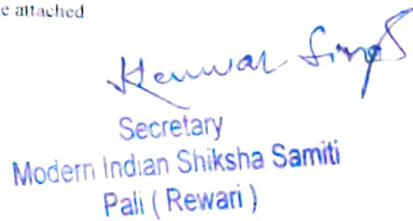 e attached
Kanwar Singh
Secretary
Modern Indian Shiksha Samiti
Pali ( Rewari )